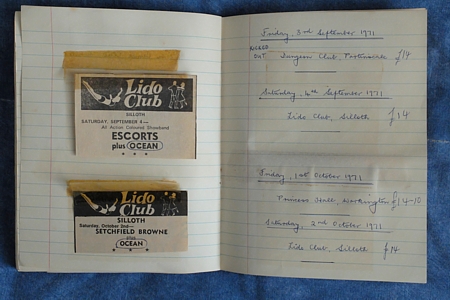 Lido
Club
SILLOTH
SATURDAY, SEPTEMBER 4—
All Action Coloured Showband
ESCORTS
plus OCEAN
Lido
Club
SILLOTH
Saturday, October 2nd—
SETCHFIELD BROWNE
plus
OCEAN
Friday, 3rd September 1971
OUT Dungeon Club, £14
Saturday, 4th September 1971
Lido Club, Silloth £14
Friday, 1st October 1971
Princess Hall, Workington £14-10
Saturday, 2nd October 1971
Lido Club, Silloth £14